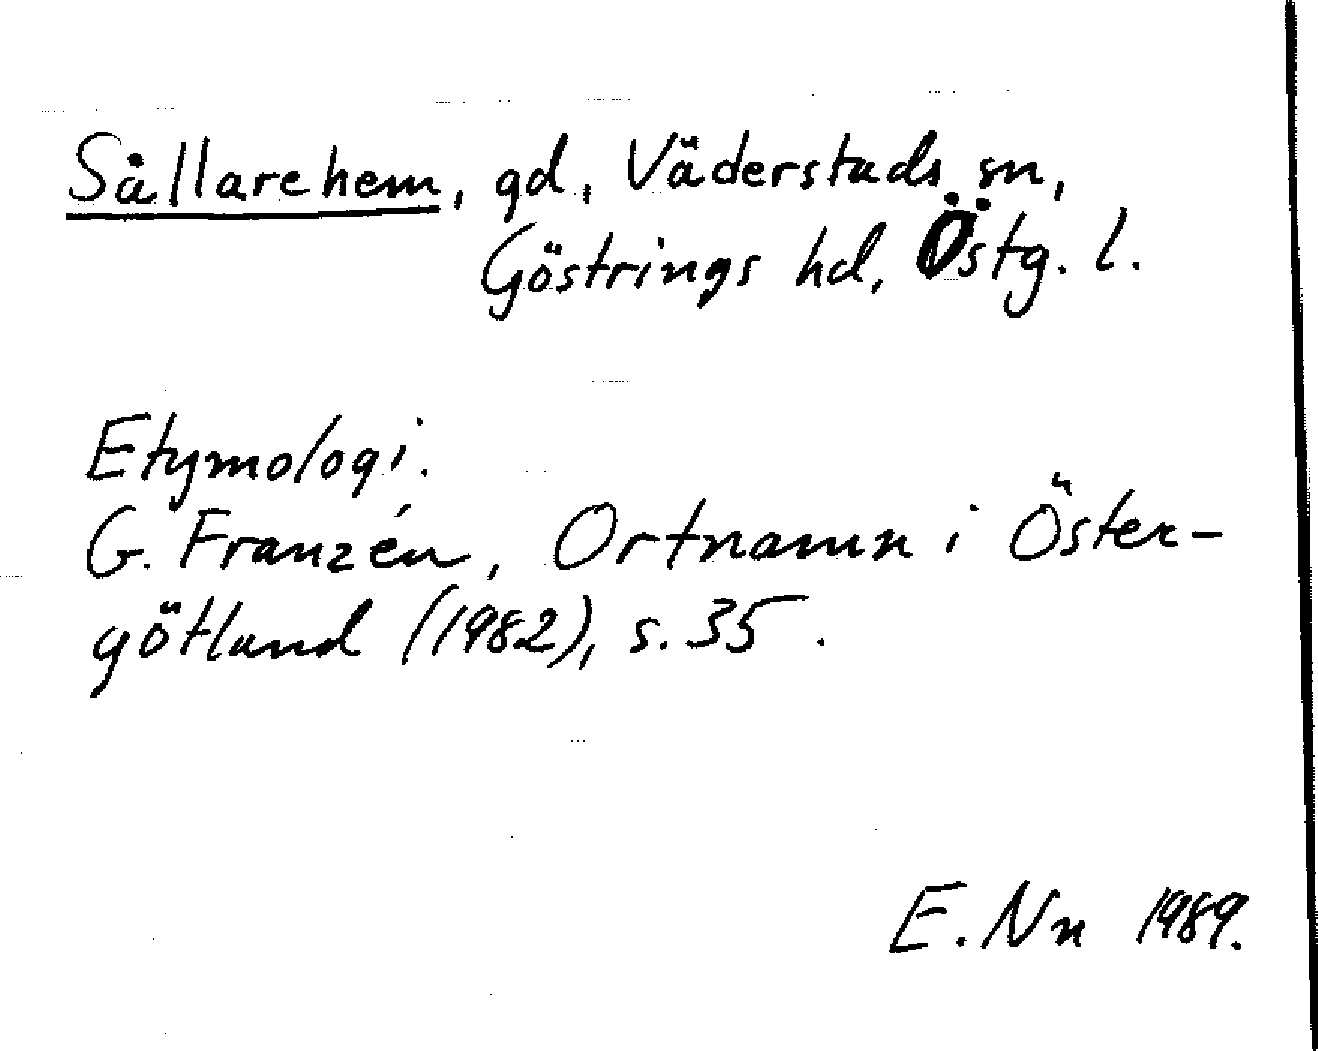 Sållarehem, gd, Väderstads sn,
Göstrings hd, Östg. l.
Etymologi.
G. Franzén, Ortnamn i Öster-
götland (1982), s. 35.
E. Nn 1989.